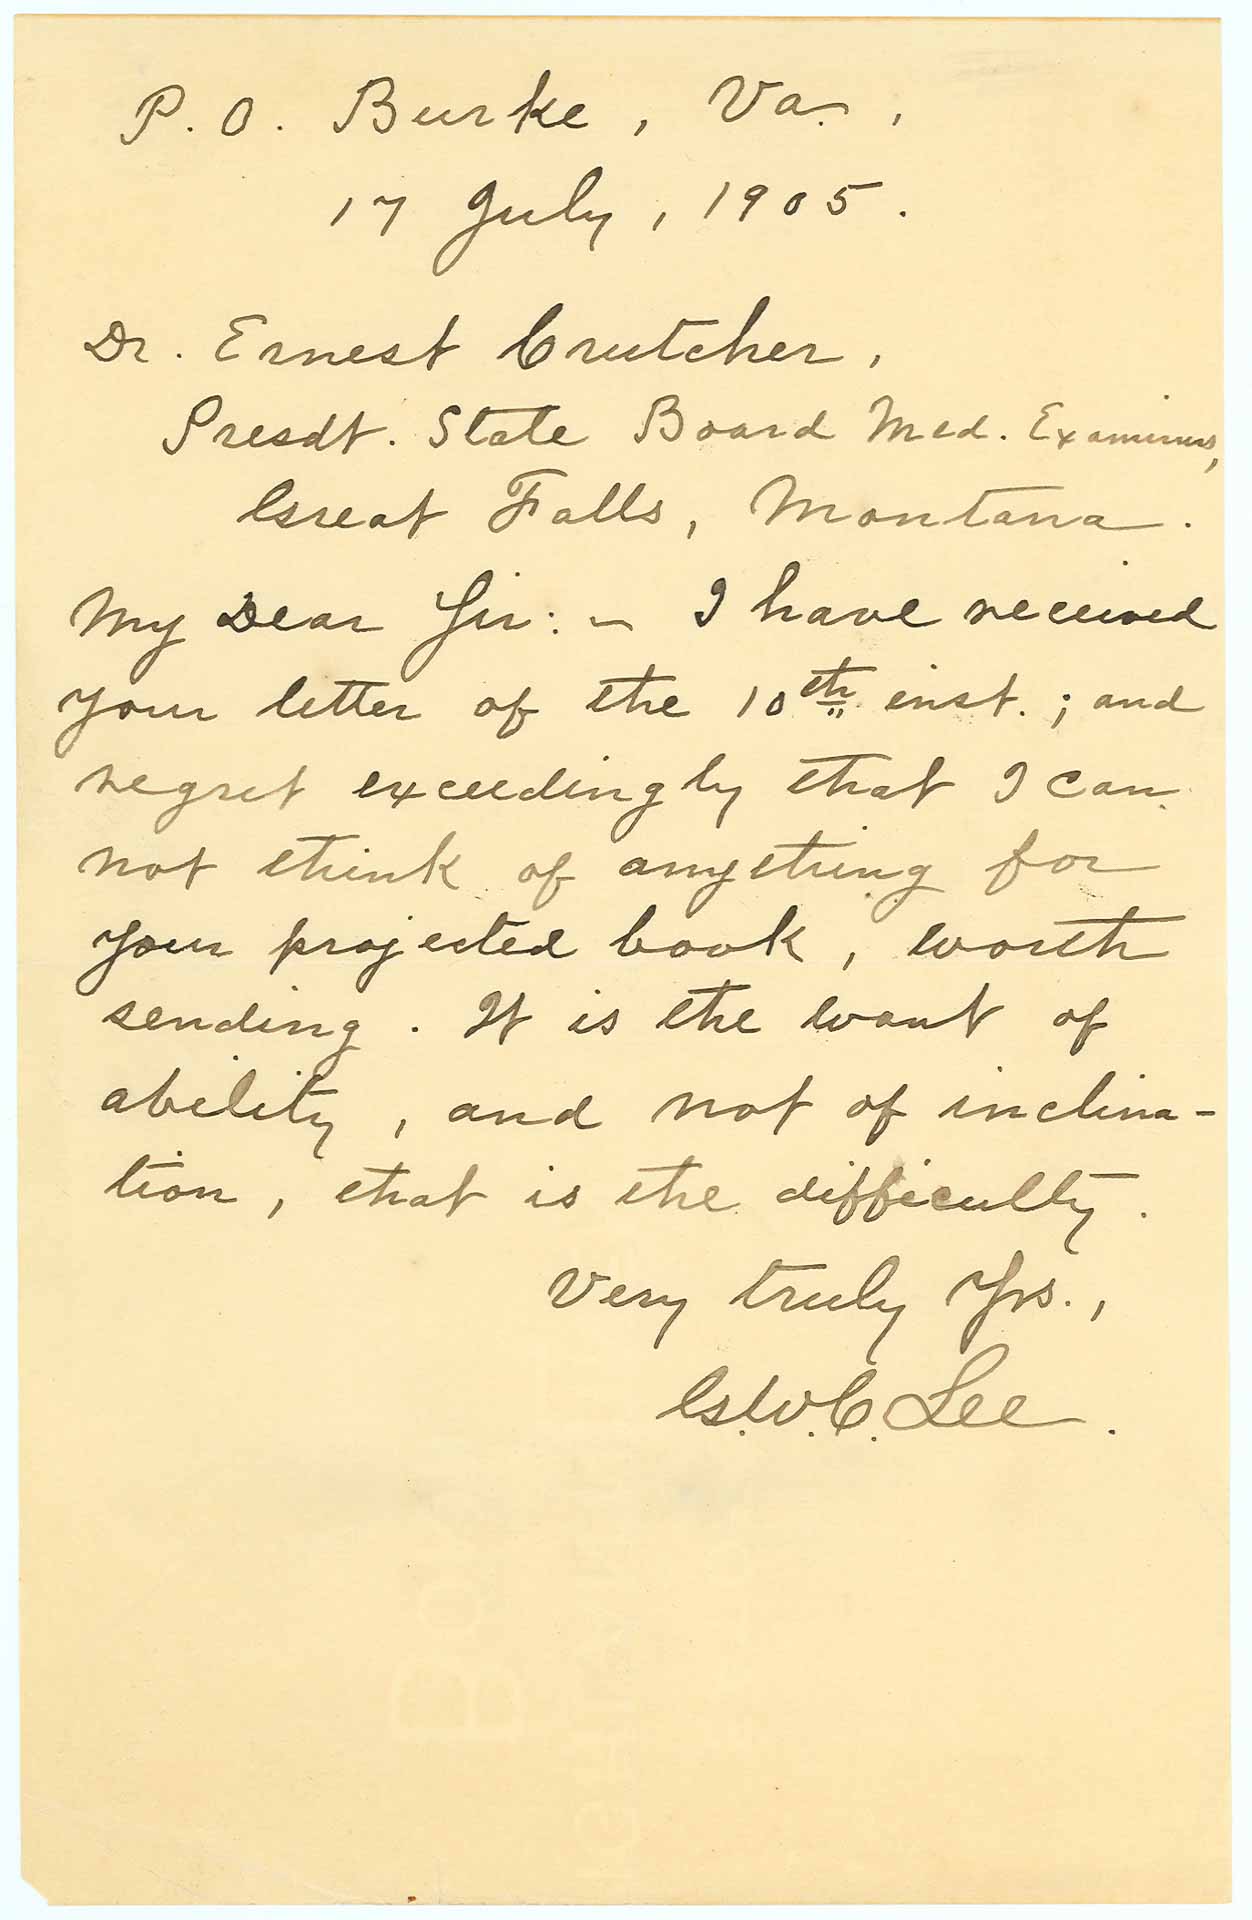 P. O. Burke, Va.,
17 July, 1905.
Dr. Ernest Crutcher,
Presdt. State Board Med. Examiners,
Great Falls, Montana.
My Dear Sir: – I have received
your letter of the 10th inst.; and
regret exceedingly that I can
not think of anything for
your projected book, worth
sending. It is the want of
ability, and not of inclina-
tion, that is the difficulty.
Very truly Yrs.,
G.W.C. Lee.